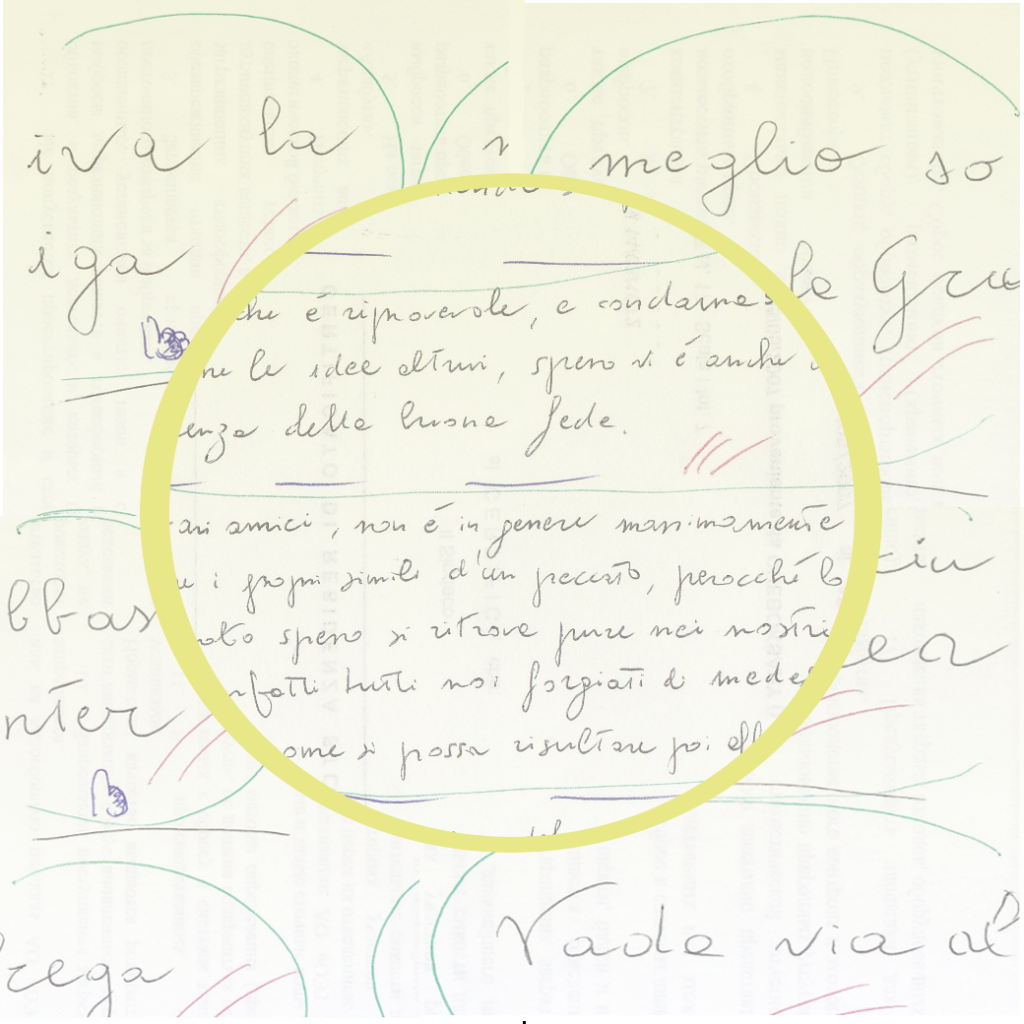 iva la
meglio so
iga
le Gru
che è riprovevole, e condanna
ne le idee altrui, spesso vi è anche
enza della buona fede.
ari amici, non è in genere massimamente
i propri simili d'un peccato, perocché lo
oto spesso si ritrova pure nei nostri
nfatti tutti noi forgiati di mede
ome si possa risultare poi all
bbas
nter
ciu
ea
rega
Vada via al